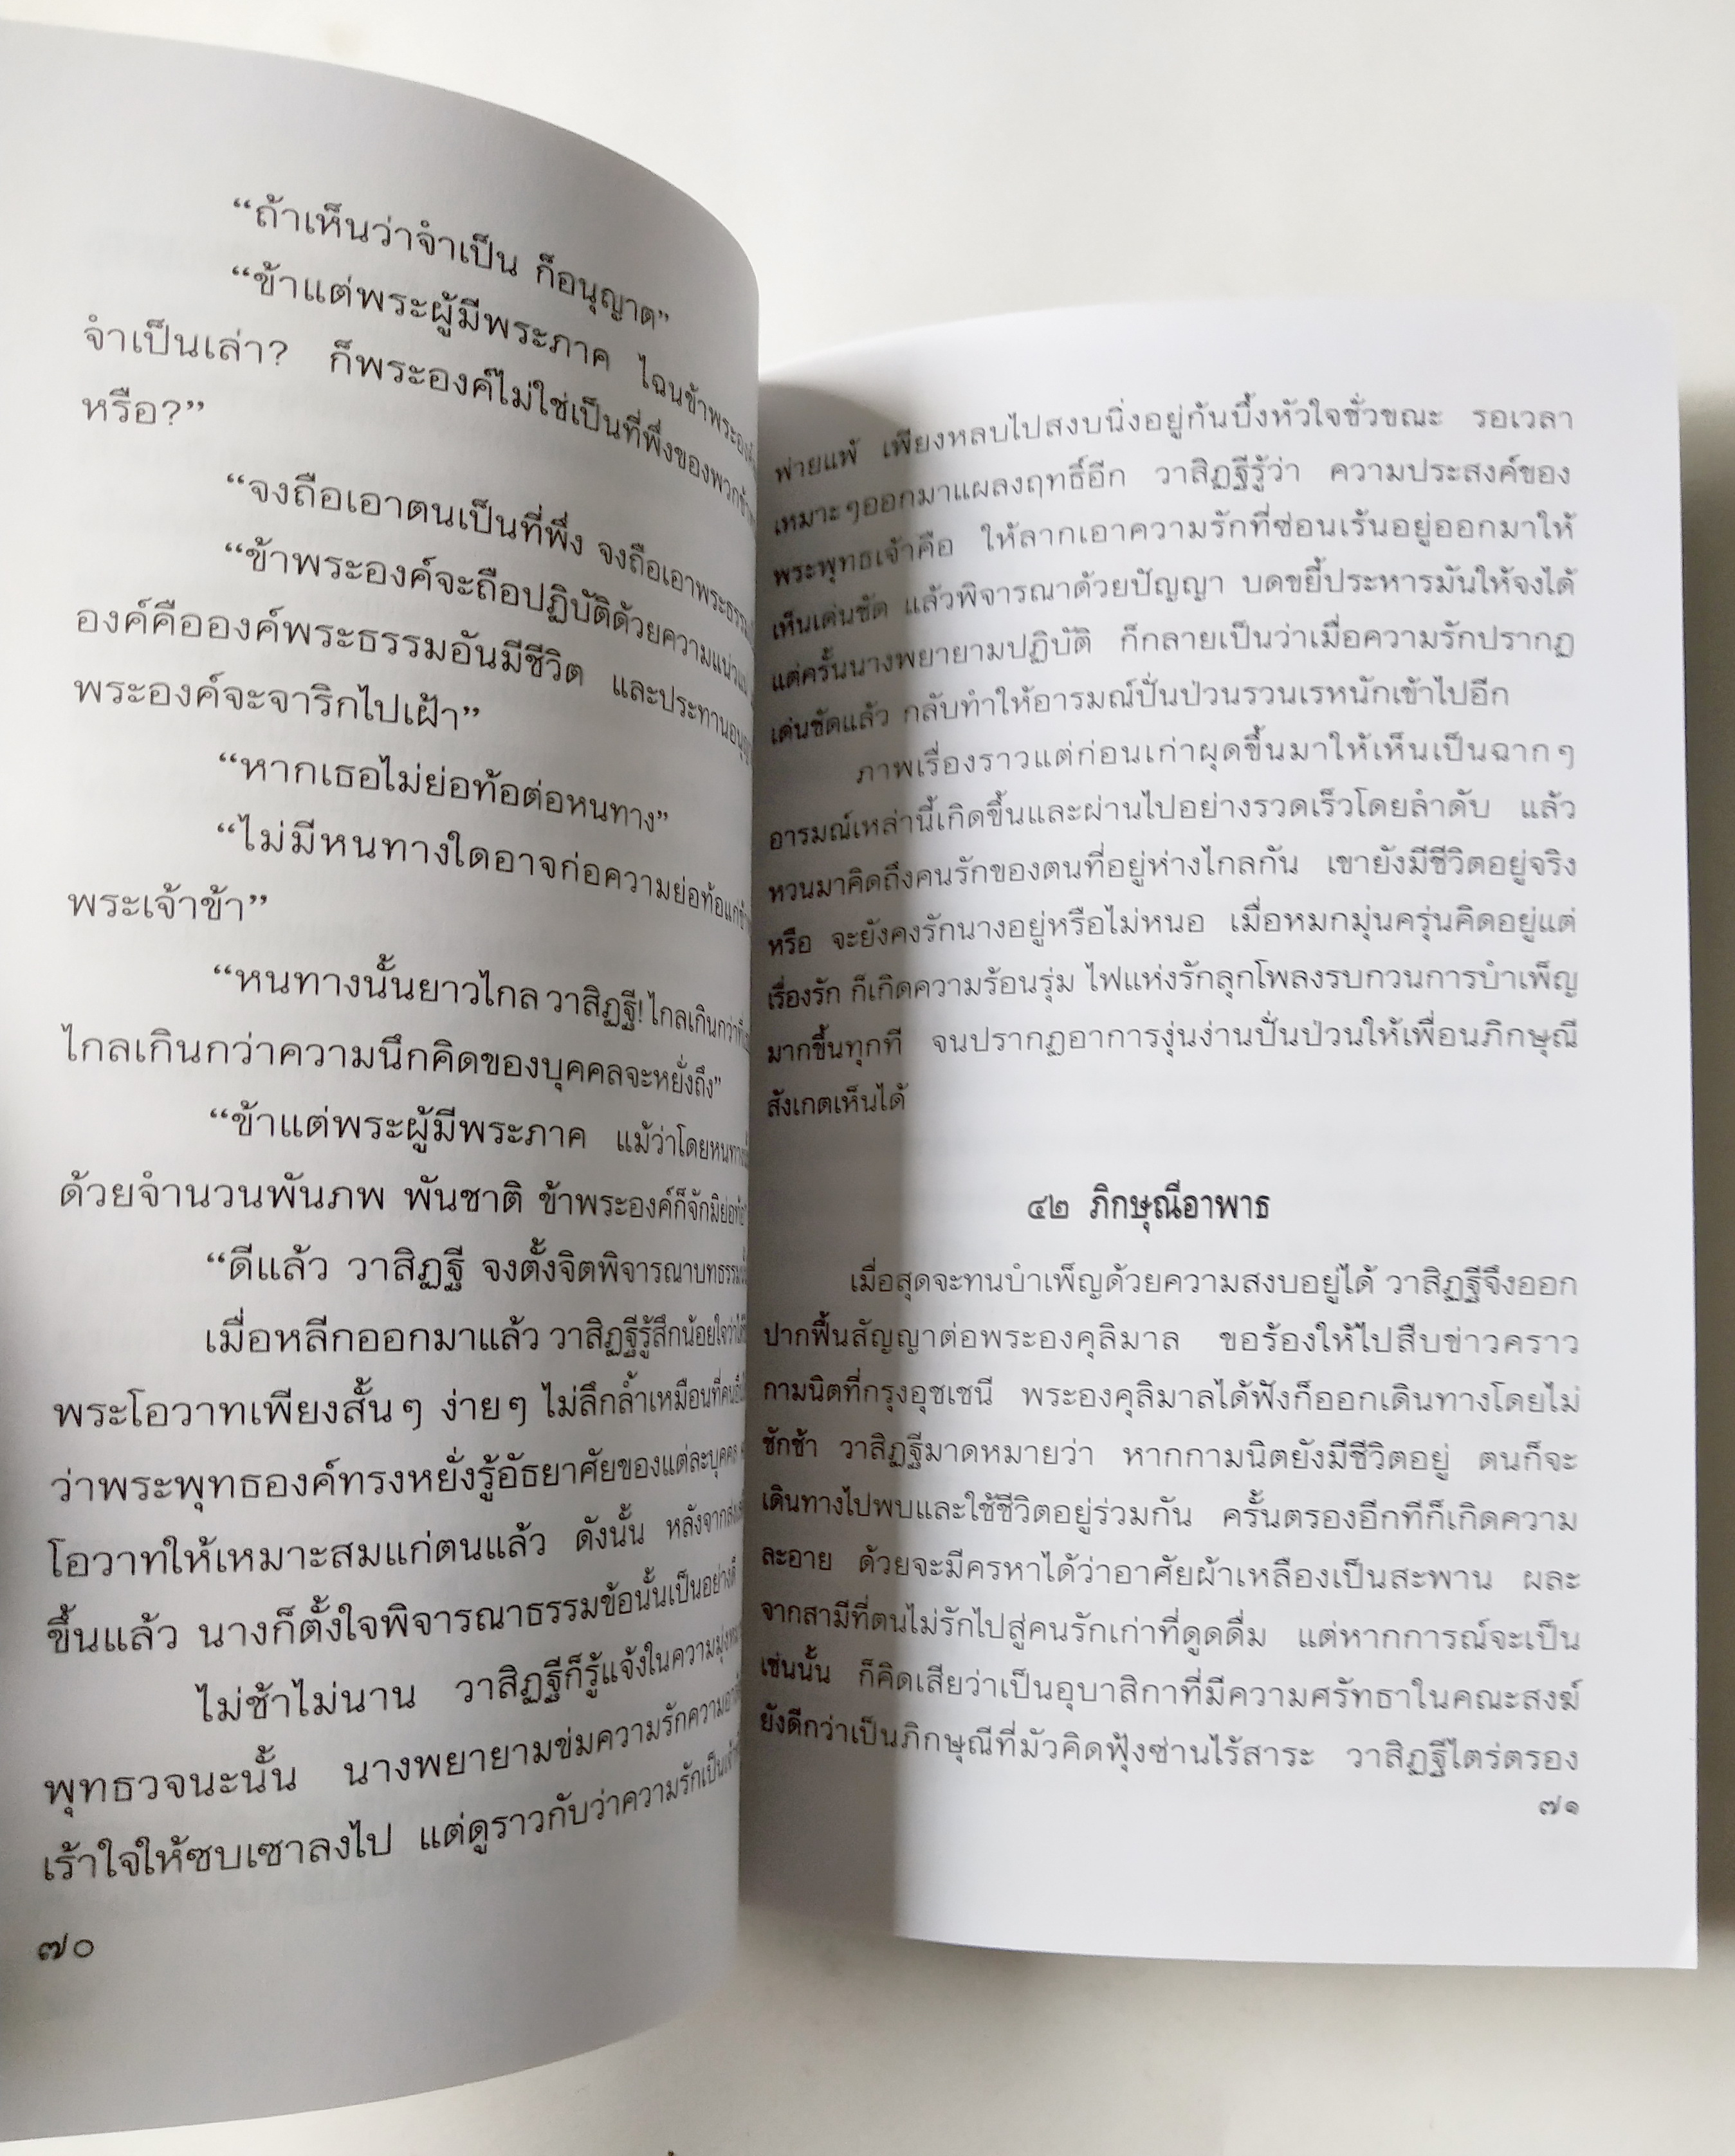 “ถ้าเห็นว่าจำเป็น ก็อนุญาต”
“ข้าแต่พระผู้มีพระภาค ไฉนข้าพระองค์
จำเป็นเล่า? ก็พระองค์ไม่ใช่เป็นที่พึ่งของพวกข้า
หรือ?”
“จงถือเอาตนเป็นที่พึ่ง จงถือเอาพระธรรม
“ข้าพระองค์จะถือปฏิบัติด้วยความแน่ว
องค์คือองค์พระธรรมอันมีชีวิต และประทาน
พระองค์จะจาริกไปเฝ้า”
“หากเธอไม่ย่อท้อต่อหนทาง”
“ไม่มีหนทางใดอาจก่อความย่อท้อแก่ข้า
พระเจ้าข้า”
“หนทางนั้นยาวไกล วาสิฏฐี! ไกลเกินกว่า
ไกลเกินกว่าความนึกคิดของบุคคลจะหยั่งถึง”
“ข้าแต่พระผู้มีพระภาค แม้ว่าโดยหนทาง
ด้วยจำนวนพันภพ พันชาติ ข้าพระองค์ก็จักมิย่อท้อ
“ดีแล้ว วาสิฏฐี จงตั้งจิตพิจารณาบทธรรม
เมื่อหลีกออกมาแล้ว วาสิฏฐีรู้สึกน้อยใจว่า
พระโอวาทเพียงสั้นๆ ง่ายๆ ไม่ลึกล้ำเหมือนที่คน
ว่าพระพุทธองค์ทรงหยั่งรู้อัธยาศัยของแต่ละบุคคล
โอวาทให้เหมาะสมแก่ตนแล้ว ดังนั้น หลังจาก
ขึ้นแล้ว นางก็ตั้งใจพิจารณาธรรมข้อนั้นเป็นอย่างดี
ไม่ช้าไม่นาน วาสิฏฐีก็รู้แจ้งในความมุ่ง
พุทธวจนะนั้น นางพยายามข่มความรักความ
เร้าใจให้ซบเซาลงไป แต่ดูราวกับว่าความรักเป็น
๗๐
พ่ายแพ้ เพียงหลบไปสงบนิ่งอยู่ก้นบึ้งหัวใจชั่วขณะ รอเวลา
เหมาะๆออกมาแผลงฤทธิ์อีก วาสิฏฐีรู้ว่า ความประสงค์ของ
พระพุทธเจ้าคือ ให้ลากเอาความรักที่ซ่อนเร้นอยู่ออกมาให้
เห็นเด่นชัด แล้วพิจารณาด้วยปัญญา บดขยี้ประหารมันให้จงได้
แต่ครั้นนางพยายามปฏิบัติ ก็กลายเป็นว่าเมื่อความรักปรากฏ
เด่นชัดแล้ว กลับทำให้อารมณ์ปั่นป่วนรวนเรหนักเข้าไปอีก
ภาพเรื่องราวแต่ก่อนเก่าผุดขึ้นมาให้เห็นเป็นฉากๆ
อารมณ์เหล่านี้เกิดขึ้นและผ่านไปอย่างรวดเร็วโดยลำดับ แล้ว
หวนมาคิดถึงคนรักของตนที่อยู่ห่างไกลกัน เขายังมีชีวิตอยู่จริง
หรือ จะยังคงรักนางอยู่หรือไม่หนอ เมื่อหมกมุ่นครุ่นคิดอยู่แต่
เรื่องรัก ก็เกิดความร้อนรุ่ม ไฟแห่งรักลุกโพลงรบกวนการบำเพ็ญ
มากขึ้นทุกที จนปรากฏอาการงุ่นง่านปั่นป่วนให้เพื่อนภิกษุณี
สังเกตเห็นได้
๔๒ ภิกษุณีอาพาธ
เมื่อสุดจะทนบำเพ็ญด้วยความสงบอยู่ได้ วาสิฏฐีจึงออก
ปากฟื้นสัญญาต่อพระองคุลิมาล ขอร้องให้ไปสืบข่าวคราว
กามนิตที่กรุงอุชเชนี พระองคุลิมาลได้ฟังก็ออกเดินทางโดยไม่
ชักช้า วาสิฏฐีมาดหมายว่า หากกามนิตยังมีชีวิตอยู่ ตนก็จะ
เดินทางไปพบและใช้ชีวิตอยู่ร่วมกัน ครั้นตรองอีกทีก็เกิดความ
ละอาย ด้วยจะมีครหาได้ว่าอาศัยผ้าเหลืองเป็นสะพาน ผละ
จากสามีที่ตนไม่รักไปสู่คนรักเก่าที่ดูดดื่ม แต่หากการณ์จะเป็น
เช่นนั้น ก็คิดเสียว่าเป็นอุบาสิกาที่มีความศรัทธาในคณะสงฆ์
ยังดีกว่าเป็นภิกษุณีที่มัวคิดฟุ้งซ่านไร้สาระ วาสิฏฐีไตร่ตรอง
๗๑